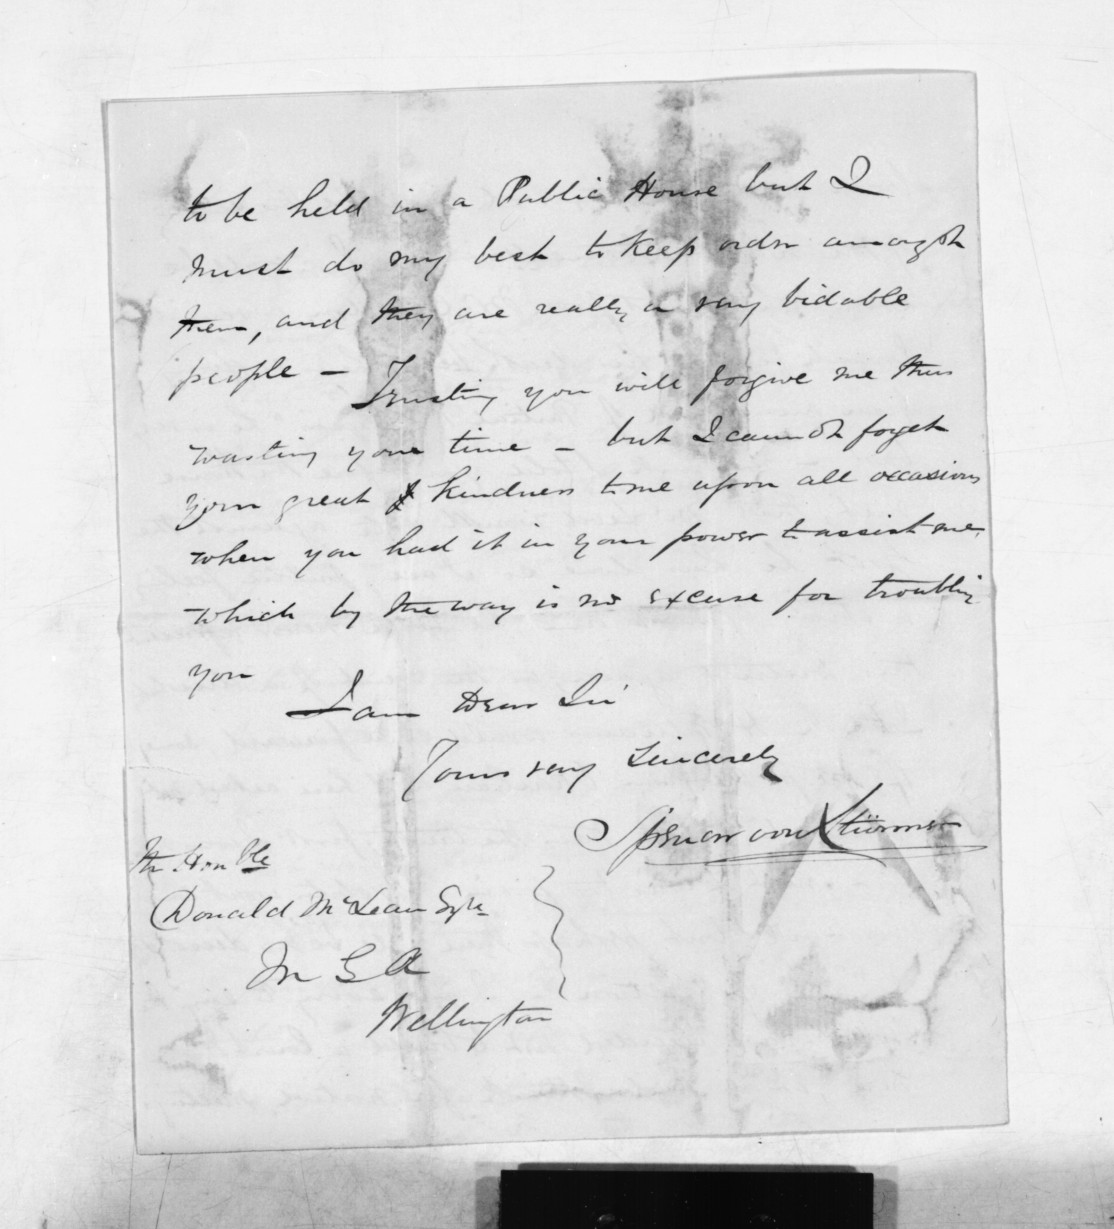 to be held in a Public House but I
must do my best to keep order amongst
them, and they are really a very bidable
people – Trusting you will forgive me thus
wasting your time – but I cannot forget
your great kindness to me upon all occasions
when you had it in your power to assist me.
which by the way is no excuse for troubling
you
I am Dear Sir
Yours very Sincerely
Spencer von Stürmer
The Honble
Donald McLean Esqre
M G A
Wellington